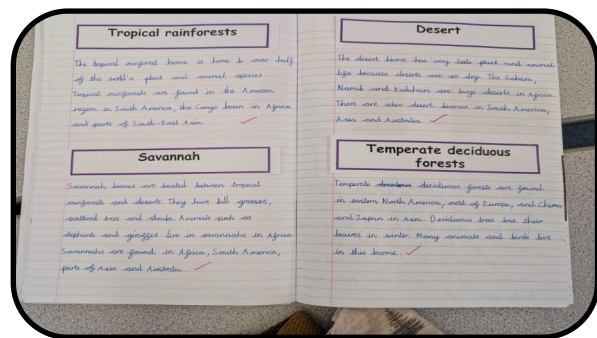 Tropical rainforests
The tropical rainforest biome is home to over half
of the world's plant and animal species.
Tropical rainforests are found in the Amazon
region in South America, the Congo basin in Africa
and parts of South-East Asia.
Savannah
Savannah biomes are located between tropical
rainforests and deserts. They have tall grasses,
scattered trees and shrubs. Animals such as
elephants and giraffes live in savannahs in Africa.
Savannahs are found in Africa, South America,
parts of Asia and Australia.
Desert
The desert biome has very little plant and animal
life because deserts are so dry. The Sahara,
Namib and Kalahari are large deserts in Africa.
There are also desert biomes in South America,
Asia and Australia.
Temperate deciduous
forests
Temperate deciduous forests are found
in eastern North America, most of Europe, and China
and Japan in Asia. Deciduous trees lose their
leaves in winter. Many animals and birds live
in this biome.